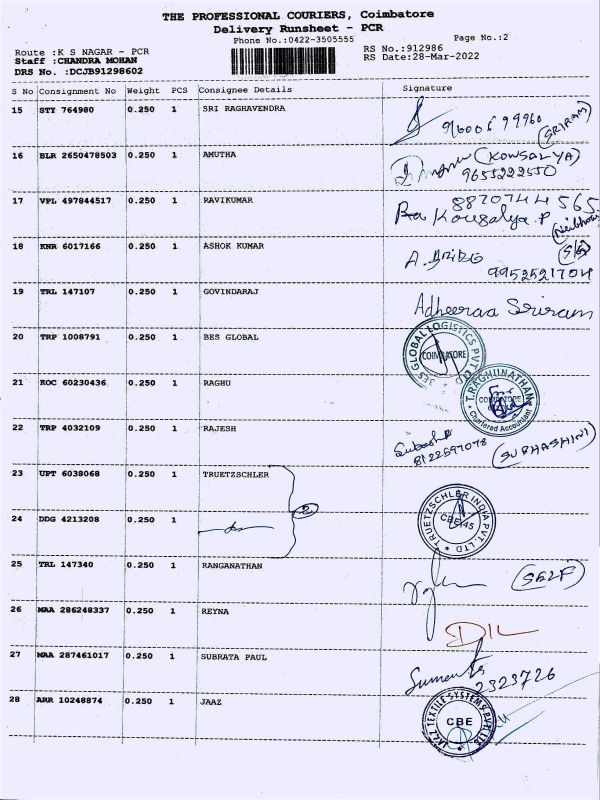 THE PROFESSIONAL COURIERS, Coimbatore
Delivery Runsheet - PCR
Phone No.:0422-3505555
Page No.:2
Route :K S NAGAR - PCR
RS No.:912986
Staff :CHANDRA MOHAN
RS Date:28-Mar-2022
DRS No. :DCJB91298602
S No Consignment No Weight PCS Consignee Details Signature
15 STY 764980 0.250 1 SRI RAGHAVENDRA
9600699960 (SRIRAM)
16 BLR 2650478503 0.250 1 AMUTHA (KOWSALYA)
9655222550
17 VPL 497844517 0.250 1 RAVIKUMAR 8870744565
Kousalya.P
18 KNR 6017166 0.250 1 ASHOK KUMAR A.
9952521704
19 TRL 147107 0.250 1 GOVINDARAJ Adheeraa Sriram
20 TRP 1008791 0.250 1 BES GLOBAL
BES GLOBAL LOGISTICS PVT LTD
COIMBATORE
21 KOC 60230436 0.250 1 RAGHU
T.RAGHUNATHAN
COIMBATORE
Chartered Accountant
22 TRP 4032109 0.250 1 RAJESH
8122597078 (SUBHASHINI)
23 UPT 6038068 0.250 1 TRUETZSCHLER
2
TRUETZSCHLER INDIA PVT. LTD
CBE-45
24 DDG 4213208 0.250 1
25 TRL 147340 0.250 1 RANGANATHAN (SELF)
26 MAA 286248337 0.250 1 REYNA
27 MAA 287461017 0.250 1 SUBRATA PAUL
2323726
28 ARR 10248874 0.250 1 JAAZ
CBE